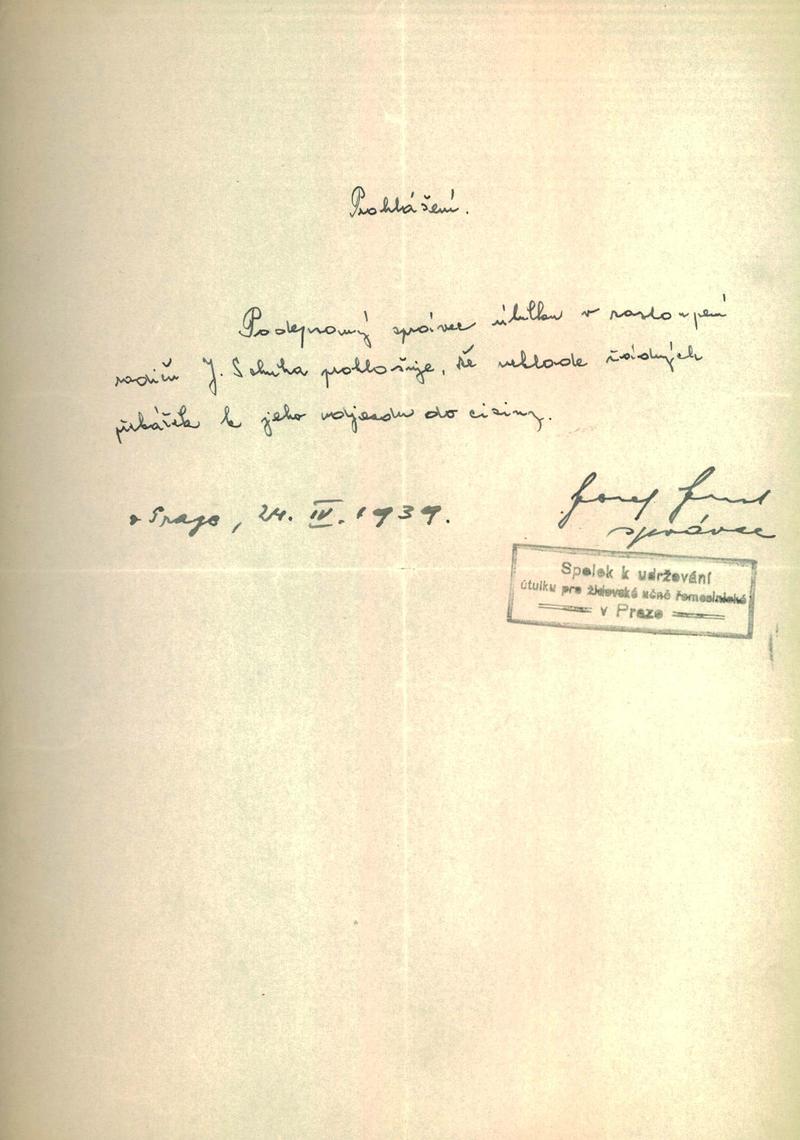 Prohlášení.
Podepsaný správce útulku v zastoupení
rodičů J. prohlašuje, že neklade žádných
překážek k jeho odjezdu do ciziny.
v Praze, 24. IV. 1939.
Josef
správce
Spolek k udržování
útulku pro židovské učně řemeslnické
v Praze